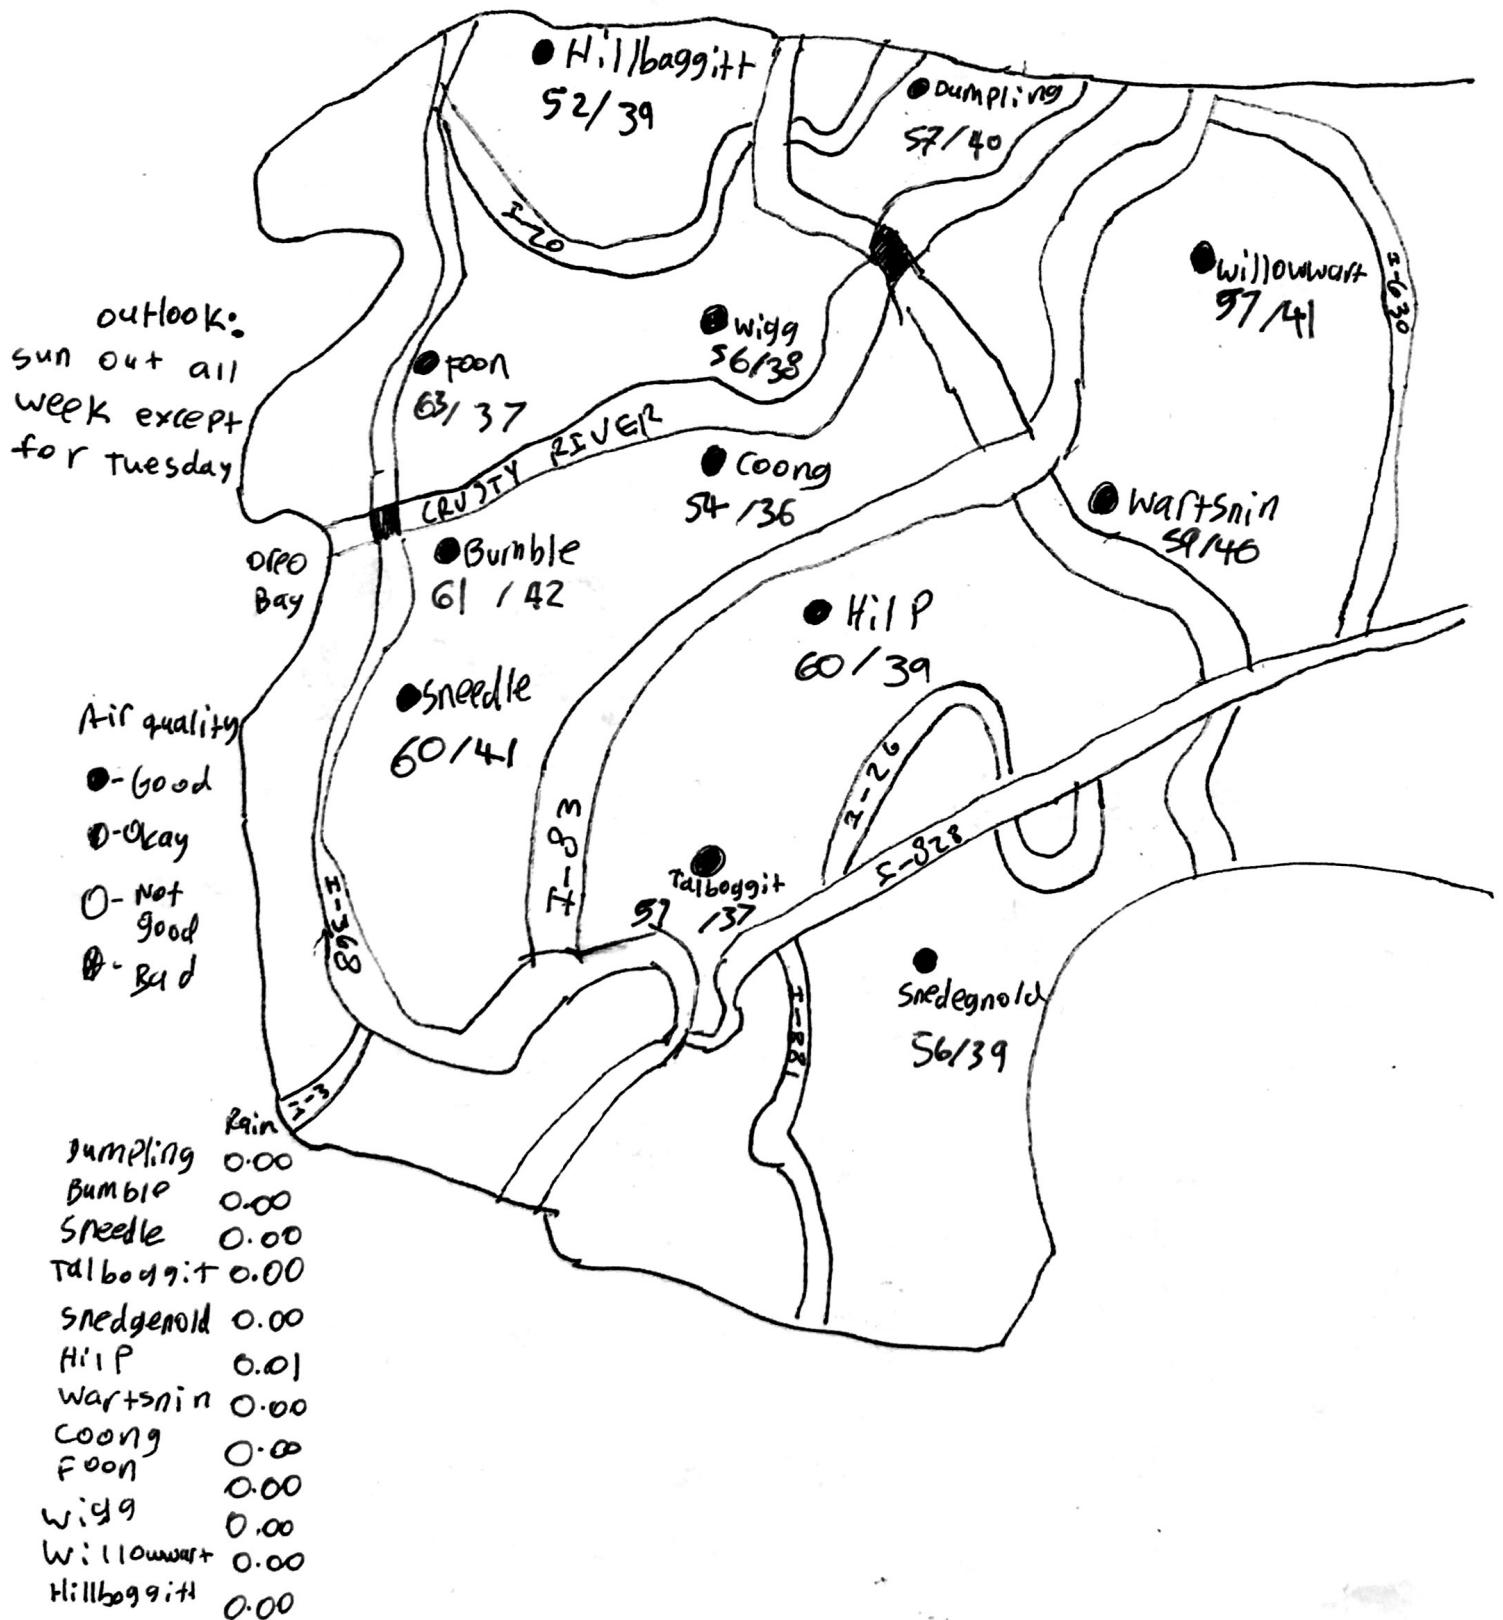 Hillbaggitt
52/39
Dumpling
57/40
I-20
Willowwart
57/41
I-630
outlook:
sun out all
week except
for Tuesday
Wigg
56/38
Foon
63/37
CRUSTY RIVER
Coong
54/36
Wartsnin
59/40
Oreo
Bay
Bumble
61/42
Hilp
60/39
Sneedle
60/41
Air quality
-Good
-Okay
- Not
good
- Bad
I-83
I-26
I-828
I-368
Talboggit
57/37
Snedegnold
56/39
I-R81
I-3
Rain
Dumpling 0.00
Bumble 0.00
Sneedle 0.00
Talboggit 0.00
Snedgenold 0.00
Hilp 0.01
Wartsnin 0.00
Coong 0.00
Foon 0.00
Wigg 0.00
Willowwart 0.00
Hillboggitt 0.00